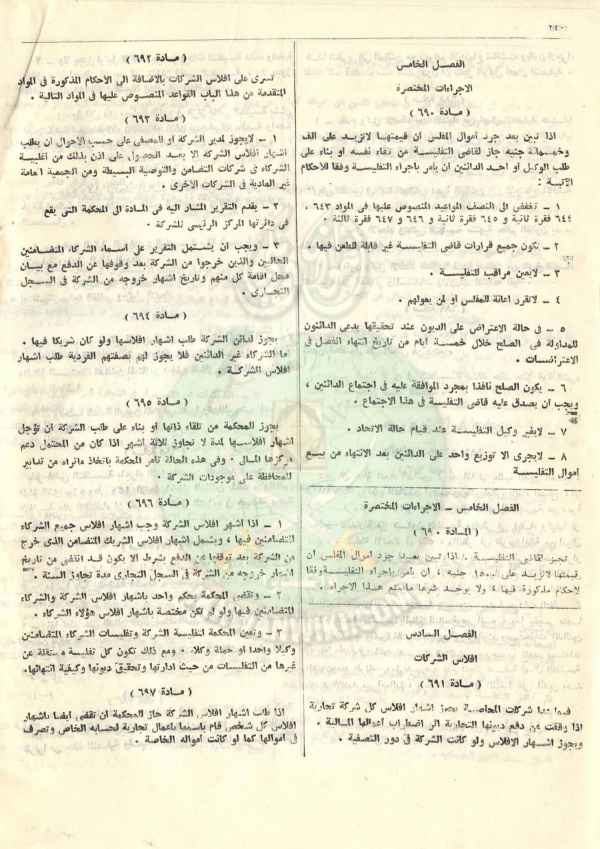 ٢٠٤
الفصل الخامس
الاجراءات المختصرة
( مادة ٦٩٠ )
اذا تبين بعد جرد أموال المفلس أن قيمتها لاتزيد على الف
وخمسمائة جنيه جاز لقاضى التفليسة من تلقاء نفسه أو بناء على
طلب الوكيل أو أحد الدائنين أن يأمر باجراء التفليسة وفقا للأحكام
الآتية :
١ - تخفض الى النصف المواعيد المنصوص عليها فى المواد ٦٤٣ ،
٦٤٤ فقرة ثانية و ٦٤٥ فقرة ثانية و ٦٤٦ و ٦٤٧ فقرة ثالثة .
٢ - تكون جميع قرارات قاضى التفليسة غير قابلة للطعن فيها .
٣ - لايعين مراقب للتفليسة .
٤ - لاتقرر اعانة للمفلس أو لمن يعولهم .
٥ - فى حالة الاعتراض على الديون عند تحقيقها يدعى الدائنون
للمداولة فى الصلح خلال خمسة أيام من تاريخ انتهاء الفصل فى
الاعتراضات .
٦ - يكون الصلح نافذا بمجرد الموافقة عليه فى اجتماع الدائنين ،
ويجب أن يصدق عليه قاضى التفليسة فى هذا الاجتماع .
٧ - لايغير وكيل التفليسة عند قيام حالة الاتحاد .
٨ - لايجرى الا توزيع واحد على الدائنين بعد الانتهاء من بيع
أموال التفليسة
الفصل الخامس - الاجراءات المختصرة
المادة ٦٩٠
تجيز لقاضى التفليسة ، اذا تبين بعد جرد أموال المفلس أن
قيمتها لاتزيد على ١٥٠٠ جنيه ، أن يأمر باجراء التفليسة وفقا
لاحكام مذكورة فيها ، ولا يوجد شرعا مايمنع هذا الاجراء .
الفصل السادس
افلاس الشركات
( مادة ٦٩١ )
فيما عدا شركات المحاصة يجوز اشهار افلاس كل شركة تجارية
اذا وقفت عن دفع ديونها التجارية اثر اضطراب أعمالها المالية .
ويجوز اشهار الافلاس ولو كانت الشركة فى دور التصفية .
( مادة ٦٩٢ )
تسرى على افلاس الشركات بالاضافة الى الاحكام المذكورة فى المواد
المتقدمة من هذا الباب القواعد المنصوص عليها فى المواد التالية .
( مادة ٦٩٣ )
١ - لايجوز لمدير الشركة أو المصفى على حسب الأحوال أن يطلب
اشهار افلاس الشركة الا بعد الحصول على اذن بذلك من أغلبية
الشركاء فى شركات التضامن والتوصية البسيطة ومن الجمعية العامة
غير العادية فى الشركات الأخرى .
٢ - يقدم التقرير المشار اليه فى المادة الى المحكمة التى يقع
فى دائرتها المركز الرئيسى للشركة .
٣ - ويجب أن يشتمل التقرير على أسماء الشركاء المتضامنين
الحاليين والذين خرجوا من الشركة بعد وقوفها عن الدفع مع بيان
محل اقامة كل منهم وتاريخ اشهار خروجه من الشركة فى السجل
التجارى .
( مادة ٦٩٤ )
يجوز لدائن الشركة طلب اشهار افلاسها ولو كان شريكا فيها .
أما الشركاء غير الدائنين فلا يجوز لهم بصفتهم الفردية طلب اشهار
افلاس الشركة .
( مادة ٦٩٥ )
يجوز للمحكمة من تلقاء ذاتها أو بناء على طلب الشركة أن تؤجل
اشهار افلاسها لمدة لا تجاوز ثلاثة أشهر اذا كان من المحتمل دعم
مركزها المالى . وفى هذه الحالة تأمر المحكمة باتخاذ ماتراه من تدابير
للمحافظة على موجودات الشركة .
( مادة ٦٩٦ )
١ - اذا أشهر افلاس الشركة وجب اشهار افلاس جميع الشركاء
المتضامنين فيها ، ويشمل اشهار افلاس الشريك المتضامن الذى خرج
من الشركة بعد توقفها عن الدفع بشرط الا يكون قد انقضى من تاريخ
اشهار خروجه من الشركة فى السجل التجارى مدة تجاوز السنة .
٢ - وتقضى المحكمة بحكم واحد باشهار افلاس الشركة والشركاء
المتضامنين فيها ولو لم تكن مختصة باشهار افلاس هؤلاء الشركاء .
٣ - وتعين المحكمة لتفليسة الشركة وتفليسات الشركاء المتضامنين
وكيلا واحدا أو جملة وكلاء . ومع ذلك تكون كل تفليسة مستقلة عن
غيرها من التفليسات من حيث ادارتها وتحقيق ديونها وكيفية انتهائها .
( مادة ٦٩٧ )
اذا طلب اشهار افلاس الشركة جاز للمحكمة أن تقضى أيضا باشهار
افلاس كل شخص قام باسمها بأعمال تجارية لحسابه الخاص وتصرف
فى أموالها كما لو كانت أمواله الخاصة .